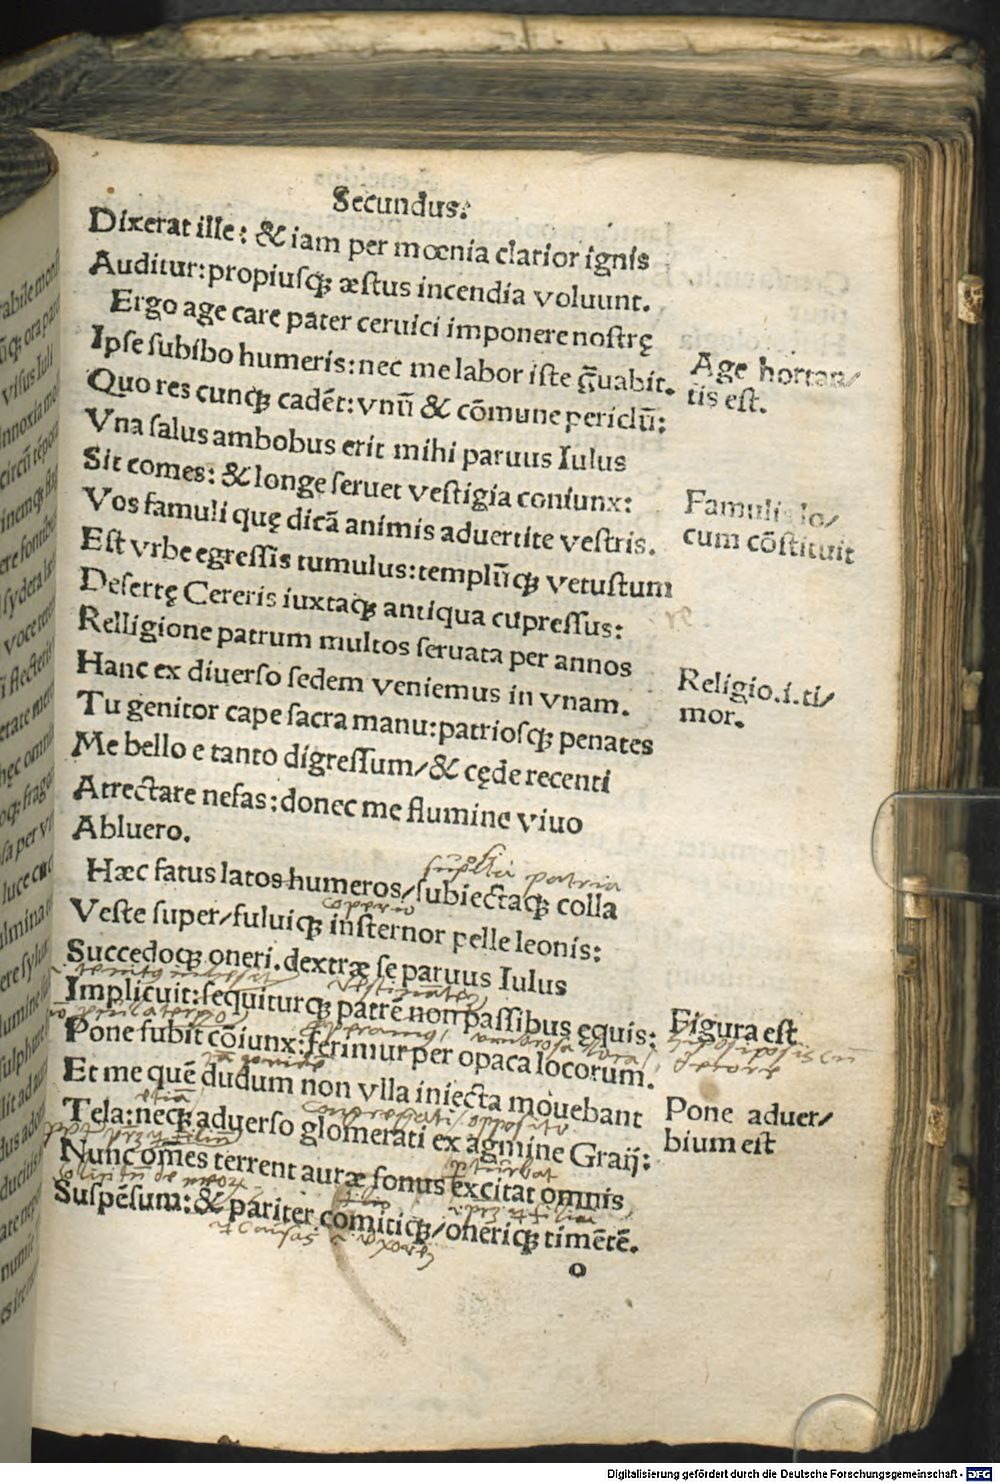 Secundus.
Dixerat ille: & iam per mœnia clarior ignis
Auditur: propiusq; æstus incendia voluunt.
Ergo age care pater ceruici imponere nostrę
Ipse subibo humeris: nec me labor iste g̃uabit.
Age hortan/
tis est.
Quo res cunq; cadēt: vnū & cōmune periclū:
Vna salus ambobus erit mihi paruus Iulus
Sit comes: & longe seruet vestigia coniunx:
Famulis lo/
cum cōstituit
Vos famuli quę dicā animis aduertite vestris.
Est vrbe egressis tumulus: templūq; vetustum
Desertę Cereris iuxtaq; antiqua cupressus:
Relligione patrum multos seruata per annos
Hanc ex diuerso sedem veniemus in vnam.
Religio.i.ti/
mor.
Tu genitor cape sacra manu: patriosq; penates
Me bello e tanto digressum/& cęde recenti
Atrectare nefas: donec me flumine viuo
Abluero.
Hæc fatus latos humeros/subiectaq; colla
patria
Veste super/fuluiq; insternor pelle leonis:
Succedoq; oneri. dextræ se paruus Iulus
Implicuit: sequiturq; patrē non passibus equis:
Figura est
Pone subit cōiunx: ferimur per opaca locorum.
Et me quē dudum non vlla iniecta mouebant
Pone aduer/
bium est
etiā
Tela: neq; aduerso glomerati ex agmine Graij:
Nunc omēs terrent auræ sonus excitat omnis
Suspēsum: & pariter comitiq;/oneriq; timētē.
o
Digitalisierung gefördert durch die Deutsche Forschungsgemeinschaft - DFG